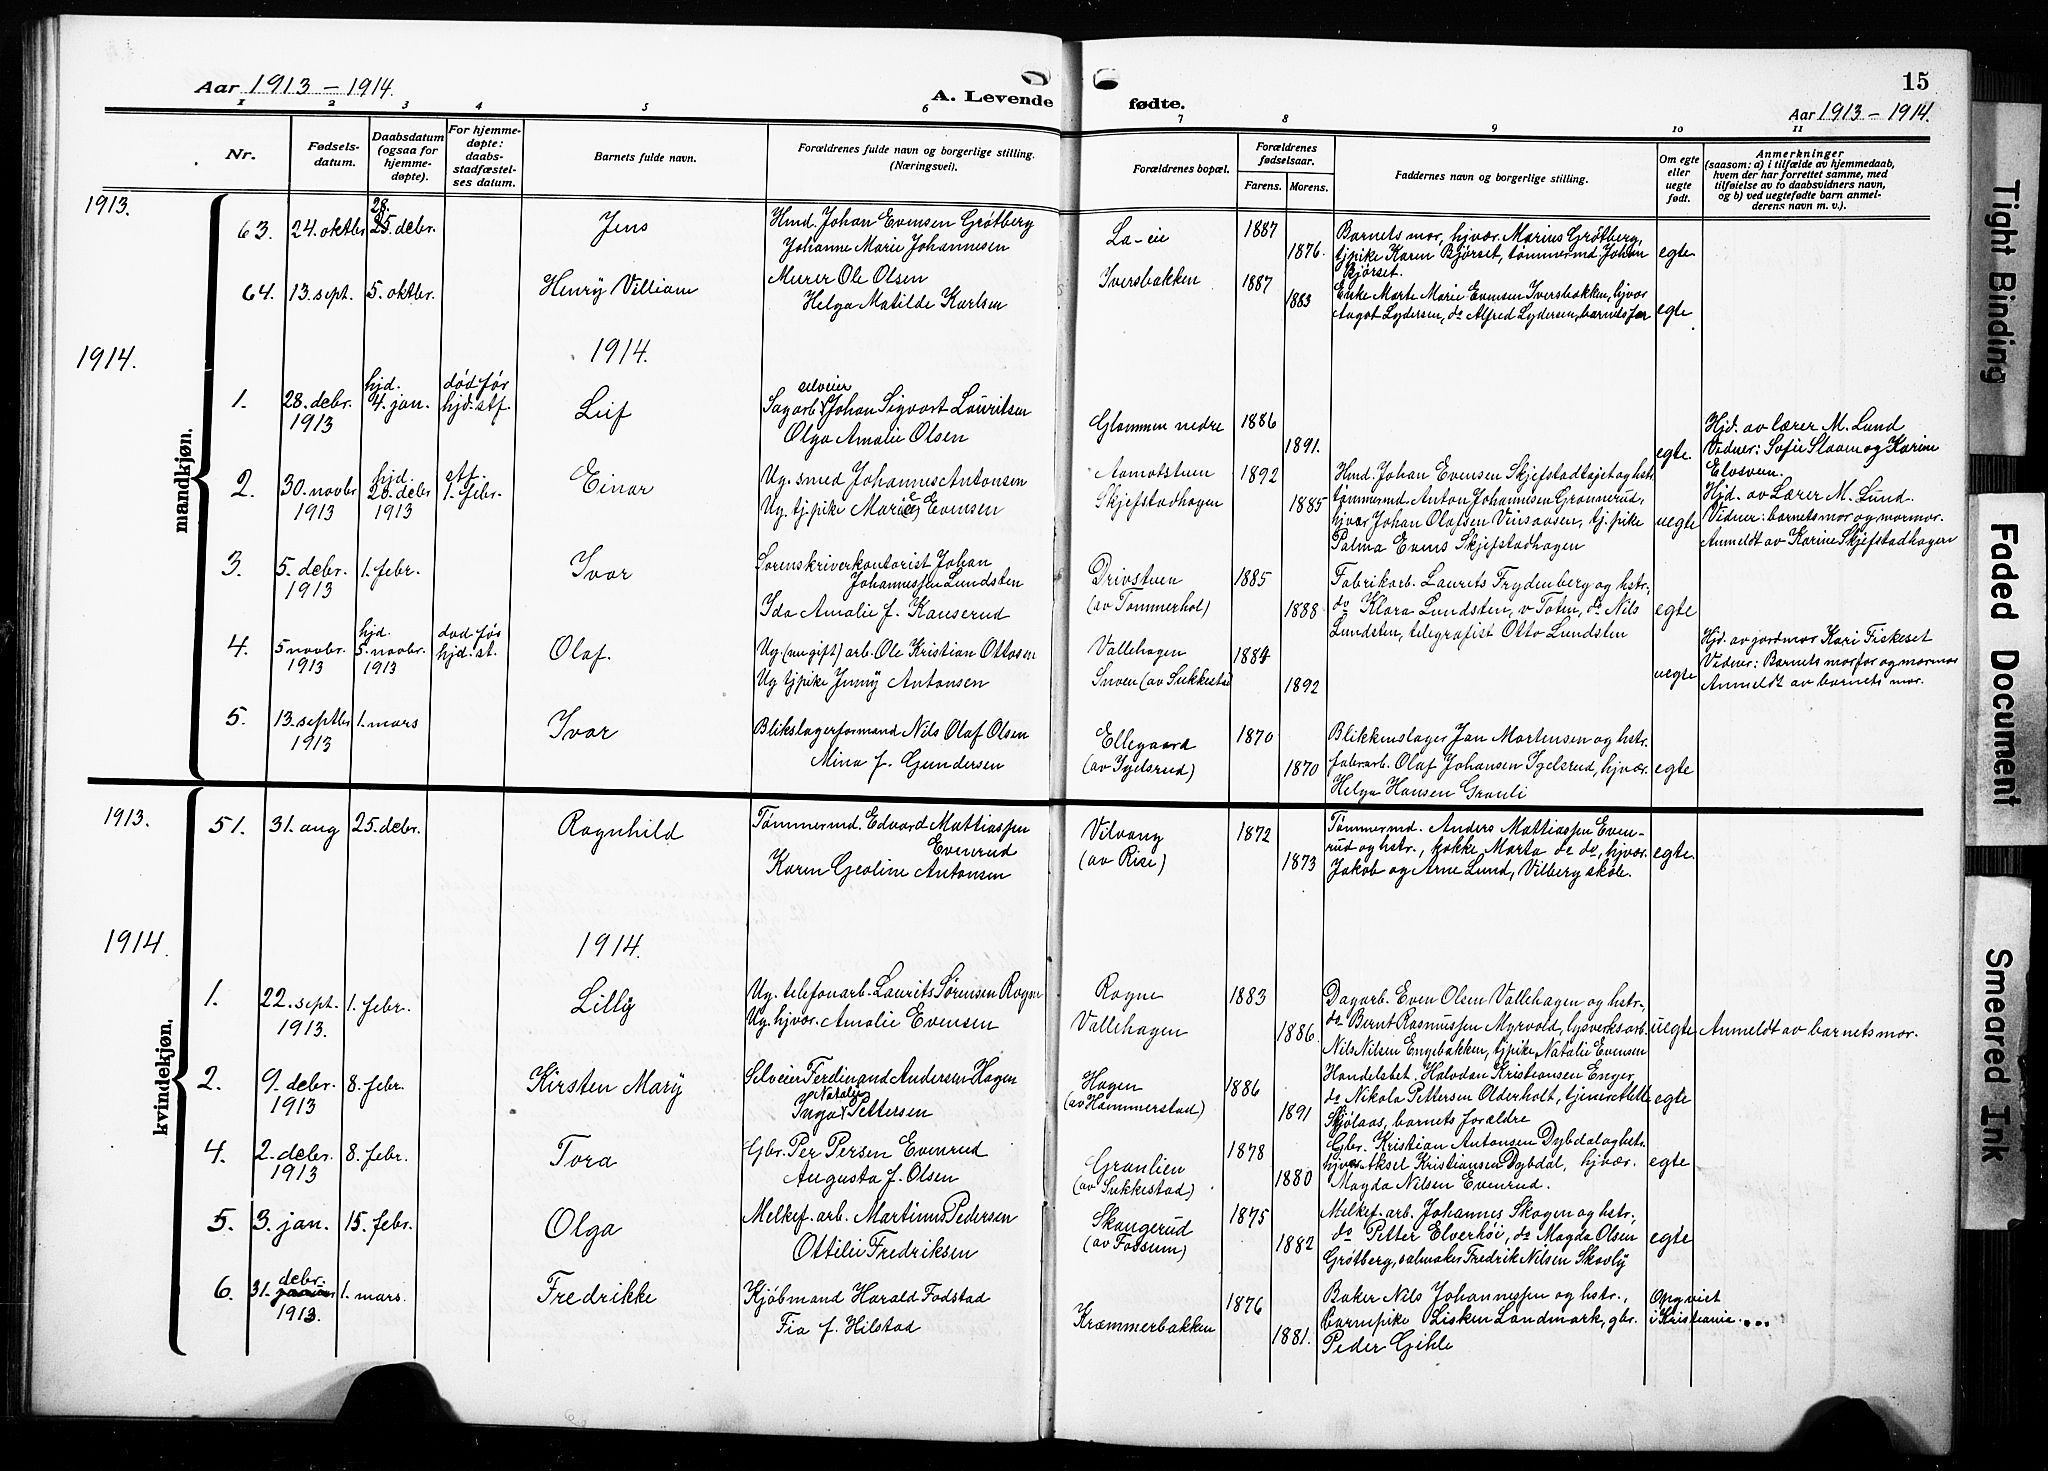 Aar 1913 – 1914.
A. Levende fødte.
15
Aar 1913 – 1914.
1 2 3 4 5 6 7 8 9 10 11
Nr.
Fødsels-
datum.
Daabsdatum
(ogsaa for
hjemme-
døpte).
For hjemme-
døpte:
daabs-
stadfæstel-
ses datum.
Barnets fulde navn.
Forældrenes fulde navn og borgerlige stilling.
(Næringsvei).
Forældrenes bopæl.
Forældrenes
fødselsaar.
Farens. Morens.
Faddernes navn og borgerlige stilling.
Om egte
eller
uegte
født.
Anmerkninger
(saasom: a) i tilfælde av hjemmedaab,
hvem der har forrettet samme, med
tilføielse av to daabsvidners navn,
og b) ved uegtefødte barn anmel-
derens navn m. v.).
mandkjøn.
1913.
63. 24. oktbr 28. 25. debr. Jens
Hmd. Johan Evensen Grøtberg
Johanne Marie Johannesen
La-eie
1887
1876.
Barnets mor, hjvær. Marius Grøtberg,
tjpike Karen Bjørset, tømmermd. Johan
Bjørset.
egte
64. 13. sept. 5. oktbr. Henry Villiam
Murer Ole Olsen
Helga Matilde Karlsen
Iversbakken
1887
1883
Enke Marte Marie Evensen Iversbakken, hjvær
Aagot Lydersen, do Alfred Lydersen, barnets far
egte
1914.
1914.
1. 28. debr. 1913
hjd. 4. jan.
død før hjd. stf.
Leif
selveier
Sagarb. Johan Sigvart Lauritsen
Olga Amalie Olsen
Glommen nedre
1886
1891.
egte
Hjd. av lærer M. Lund
Vidner: Sofie Slaam og Karine
Elosveen.
2. 30. novbr 1913
hjd. 20. debr 1913
stf. 1. febr.
Einar
Ug. smed Johannes Antonsen
Ug. tj.pike Marie Evensen
Aamotstuen
Skjefstadhagen
1892
1885
Hmd. Johan Evensen Skjefstadtajet og hstr.
tømmermd. Anton Johannesen Grønnerud,
hjvær Johan Olafsen Vinsaasen, tj. pike
Palma Evens Skjefstadhagen
uegte
Hjd. av Lærer M. Lund.
Vidner: barnets mor og mormor.
Anmeldt av Karine Skjefstadhagen
3. 5. debr. 1913
1. febr.
Ivar
Sorenskriverkontorist Johan
Johannessen Lundsten
Ida Amalie f. Kauserud
Drivstuen
(av Tømmerhol)
1885
1888
Fabrikarb. Laurits Frydenberg og hstr.,
do Klara Lundsten, v Toten, do Nils
Lundsten, telegrafist Otto Lundsten
egte
4. 5 novbr. 1913
hjd. 5. novbr. 1913
død før hjd. st.
Olaf.
Ug. (ungift) arb. Ole Kristian Ottosen
Ug tjpike Jenny Antonsen
Vallehagen
Snven (av Sukkestad
1884
1892
uegte
Hjd. av jordmor Kari Fiskeset
Vidner: Barnets morfor og mormor
Anmeldt av barnets mor.
5. 13. septbr 1913
1. mars
Ivar
Blikslagerformand Nils Olaf Olsen
Mina f. Gundersen
Ellegaard
(av Igelsrud)
1870
1870
Blikkenslager Jan Martensen og hstr.
fabrarb. Olaf Johansen Igelsrud, hjvær.
Helga Hansen Granli
egte
kvindekjøn.
1913.
51. 31. aug 25. debr. Ragnhild
Tømmermd. Edvard Mattiassen
Evenrud
Karen Geoline Antonsen
Vilvang
(av Rise)
1872
1873
Tømmermd. Anders Mattiassen Even-
rud og hstr., kokke Marta do do, hjvær.
Jakob og Arne Lund, Vilberg skole.
egte.
1914.
1914.
1. 22. sept. 1913.
1. febr.
Lilly
Ug. telefonarb. Laurits Sørensen Rogne
Ug. hjvær. Amalie Evensen
Rogne
Vallehagen
1883
1886.
Dagarb. Even Olsen Vallehagen og hstr.,
do Bernt Rasmussen Myrvold, lysverksarb.
Nils Nilsen Engebakken, tjpike Natalie Evensen
uegte
Anmeldt av barnets mor.
2. 9. debr. 1913
8. febr.
Kirsten Mary
Selveier Ferdinand Andersen Hagen
Natalie
Inga Pettersen
Hagen
(av Hammerstad)
1886
1891
Handelsbet. Halvdan Kristiansen Enger
do Nikola Pettersen Olderholt, tjeneste
Skjølaas, barnets forældre
egte
4. 2. debr. 1913
8. febr.
Tora
Gbr. Per Persen Evenrud
Augusta f. Olsen
Granlien
(av Sukkestad)
1878
1880
Gbr. Kristian Antonsen Dybdal og hstr.
hjvær. Aksel Kristiansen Dybdal, hjvær.
Magda Nilsen Evenrud.
egte
5. 3. jan. 15. febr. Olga
Melkef. arb. Martinus Pedersen
Ottilie Fredriksen
Skaugerud
(av Fossum)
1875
1882
Melkef. arb. Johannes Skogen og hstr.,
do Petter Elverhøi, do Magda Olsen
Grøtberg, salmaker Fredrik Nilsen Skovly
egte
6. 31. debr. 1913.
1. mars.
Fredrikke
Kjøbmand Harald Fodstad
Fia f. Hilstad
Kræmmerbakken
1876
1881.
Baker Nils Johannessen og hstr.,
barnepike Lisken Landmark, gbr.
Peder Gihle
Opgviet
i Kristiania
Tight Binding
Faded Document
Smeared Ink